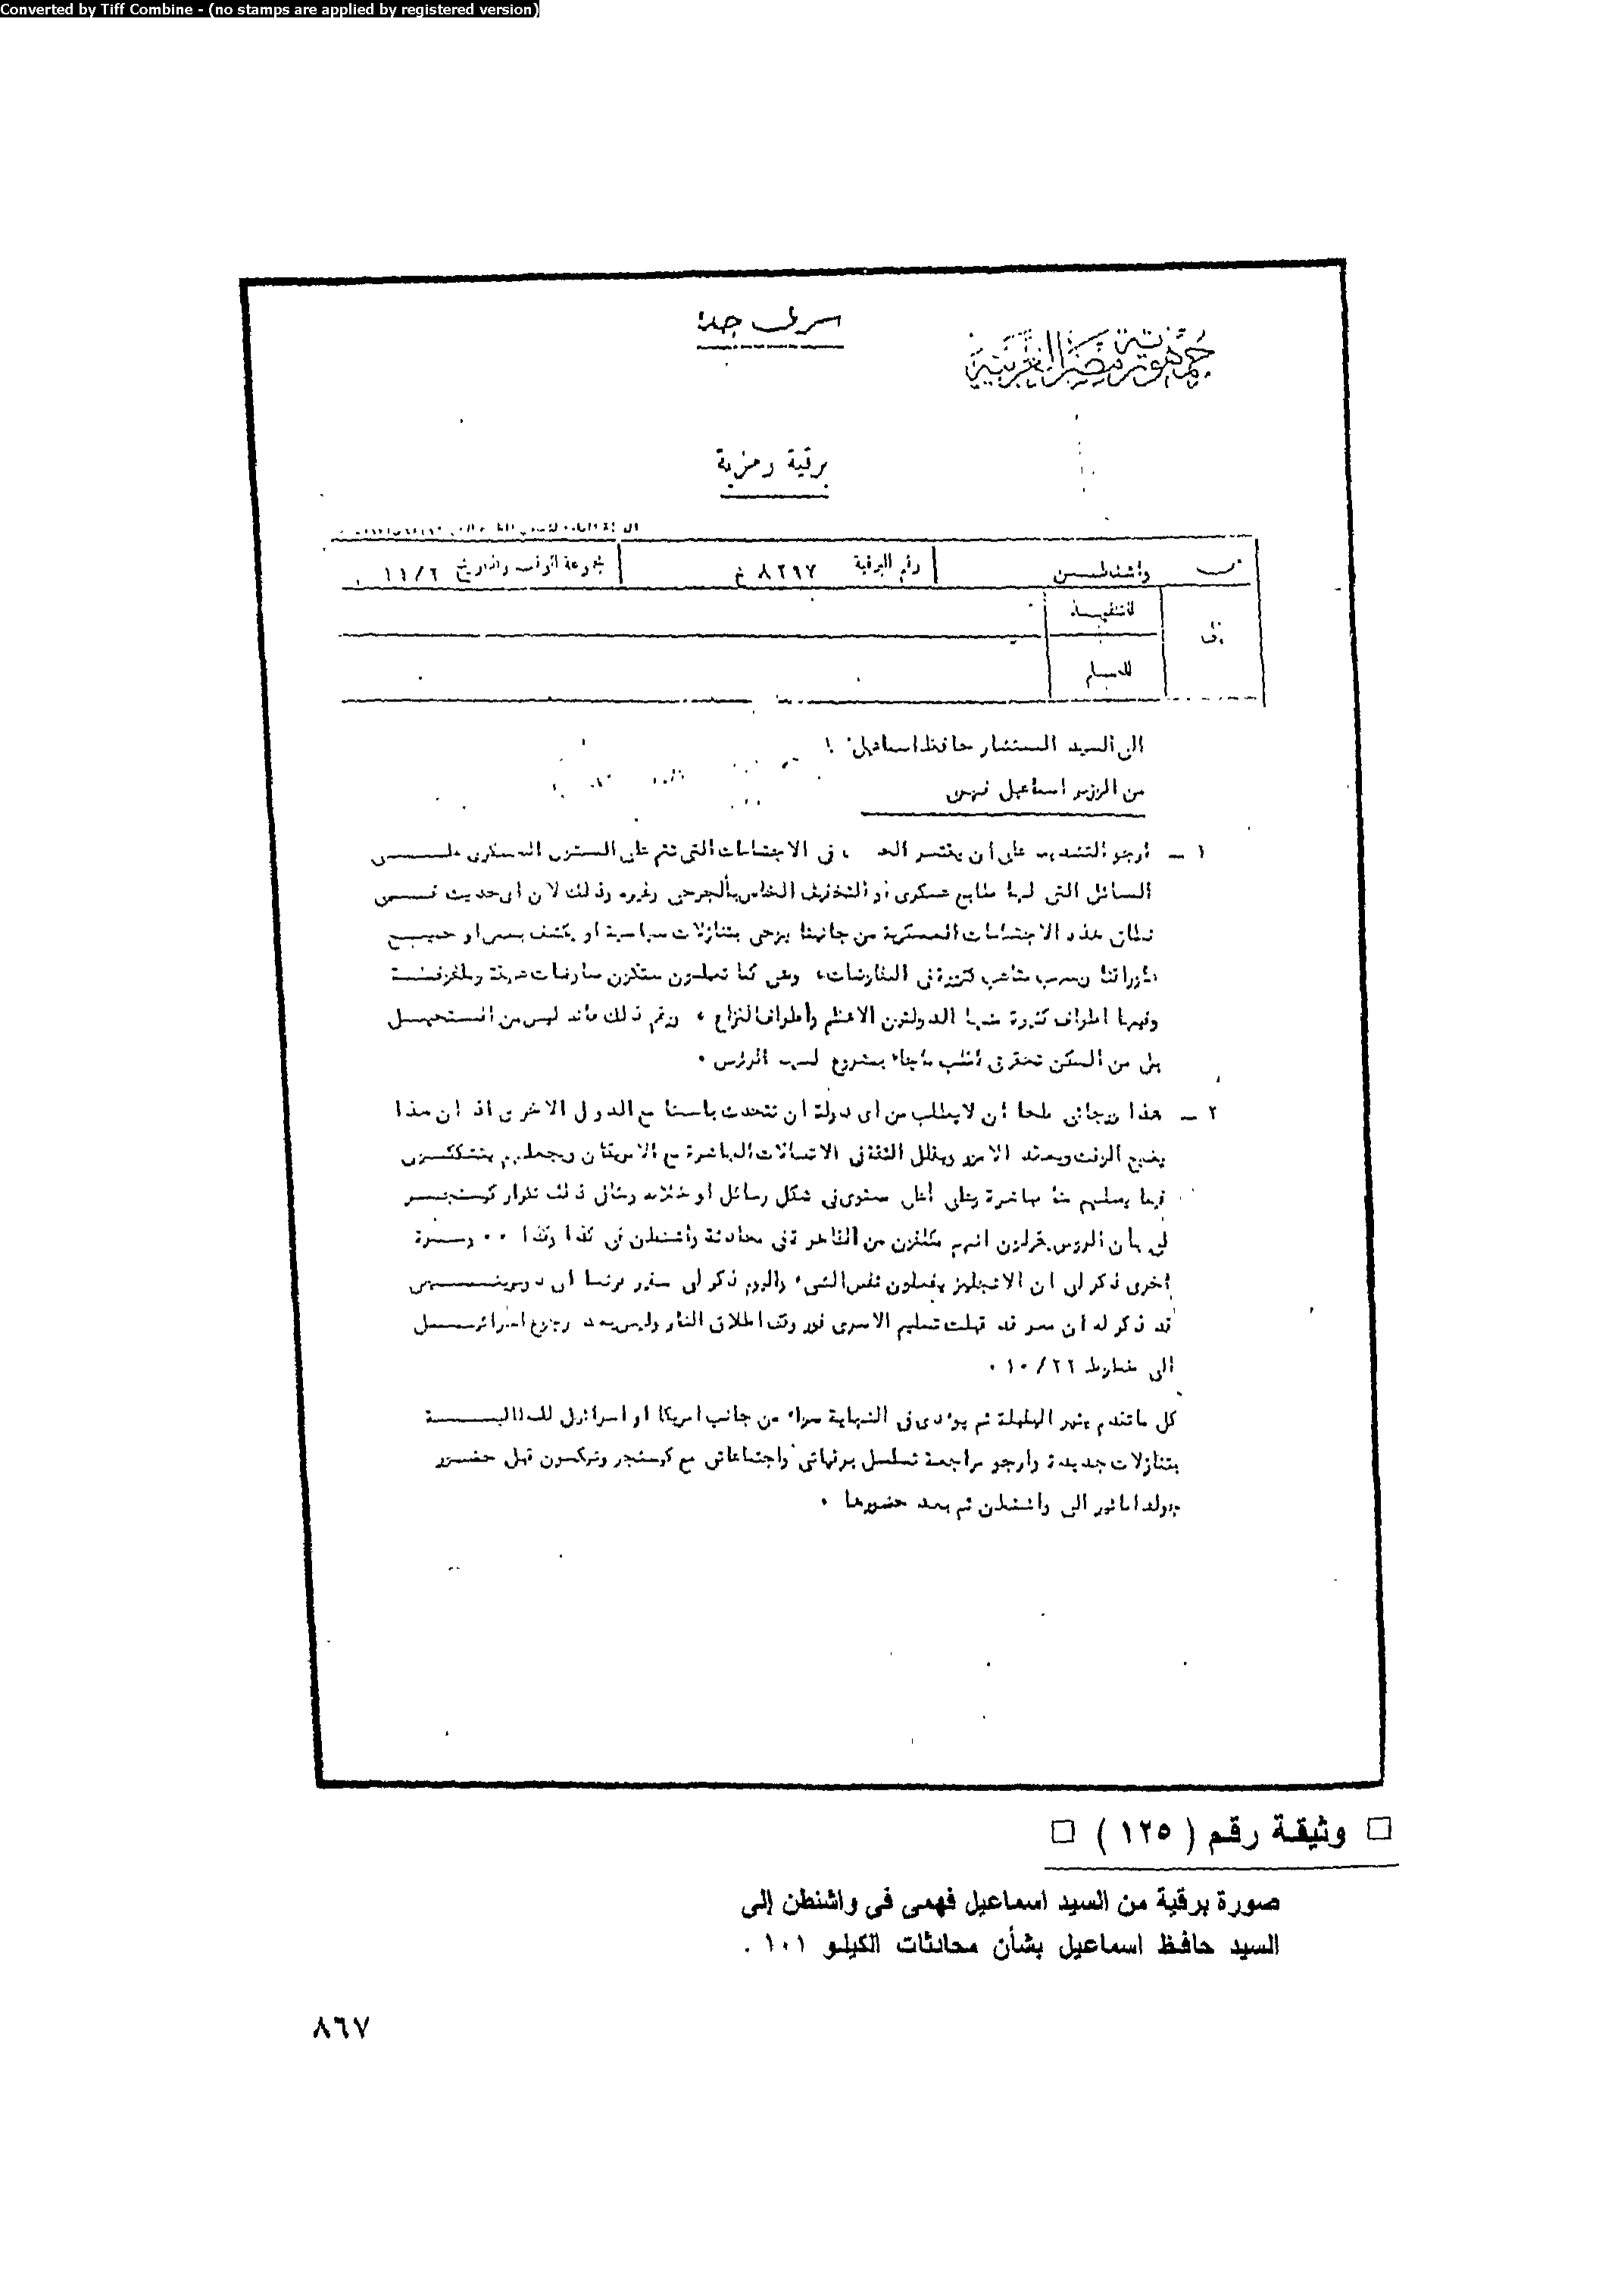 Converted by Tiff Combine - (no stamps are applied by registered version)
سرى جدا
جمهورية مصر العربية
برقية رمزية
من واشنطـــن رقم البرقية ٨٢٩٧ غ مجموعة الوقت والتاريخ ١١/٢
للتنفيـــذ
الى
للعـــلم
الى السيد المستشار حافظ اسماعيل
من الوزير اسماعيل فهمى
١ ــ أرجو التشديد على أن يقتصر فى الاجتماعات التى تتم على المستوى العسكرى علـــــى
المسائل التى لها طابع عسكرى أو التخفيف الخاص بالجرحى وغيره وذلك لان اى حديث فـــــى
نطاق هذه الاجتماعات العسكرية من جانبنا يوحى بتنازلات سياسية او يكشف بعض او جميـــع
أوراقنا يسبب متاعب كثيرة فى المفاوضات، وهى كما تعلمون ستكون مفاوضات
وفيها اطراف كثيرة منها الدولتين الاعظم وأطراف النزاع ، ورغم ذلك فأنه ليس من المستحيـــل
بل من الممكن تحقيق أغلب ماجاء بمشروع السيد الرئيس .
٢ ــ هذا ورجائى ملحا ان لايطلب من أى دولة أن تتحدث باسمنا مع الدول الاخرى اذ ان هذا
يضيع الوقت ويعقد الامور ويقلل الثقة فى الاتصالات المباشرة مع الامريكان ويجعلهم يتشككـــون
فيما يصلهم منا مباشرة وعلى أعلى مستوى فى شكل رسائل أو خلافه ومثالى ذلك تكرار كيسنجـــر
لى بأن الروس يقولون انهم مكلفون من القاهرة فى محادثة واشنطن فى كذا وكذا .. ومـــرة
أخرى ذكر لى ان الانجليز يفعلون نفس الشىء واليوم ذكر لى سفير فرنسا ان
قد ذكر له أن مصر قد قبلت تسليم الاسرى فور وقف اطلاق النار وليس بعد رجوع اسرائيـــل
الى خطوط ١٠/٢٢ .
كل ماتقدم يثير البلبلة ثم يؤدى فى النهاية سواء من جانب امريكا او اسرائيل للمطالبـــــة
بتنازلات جديدة وارجو مراجعة تسلسل برقياتى واجتماعاتى مع كيسنجر ونيكسون قبل حضـــور
جولدا مائير الى واشنطن ثم بعد حضورها .
□ وثيقة رقم ( ١٢٥ ) □
صورة برقية من السيد اسماعيل فهمى فى واشنطن إلى
السيد حافظ اسماعيل بشأن محادثات الكيلو ١٠١ .
٨٦٧